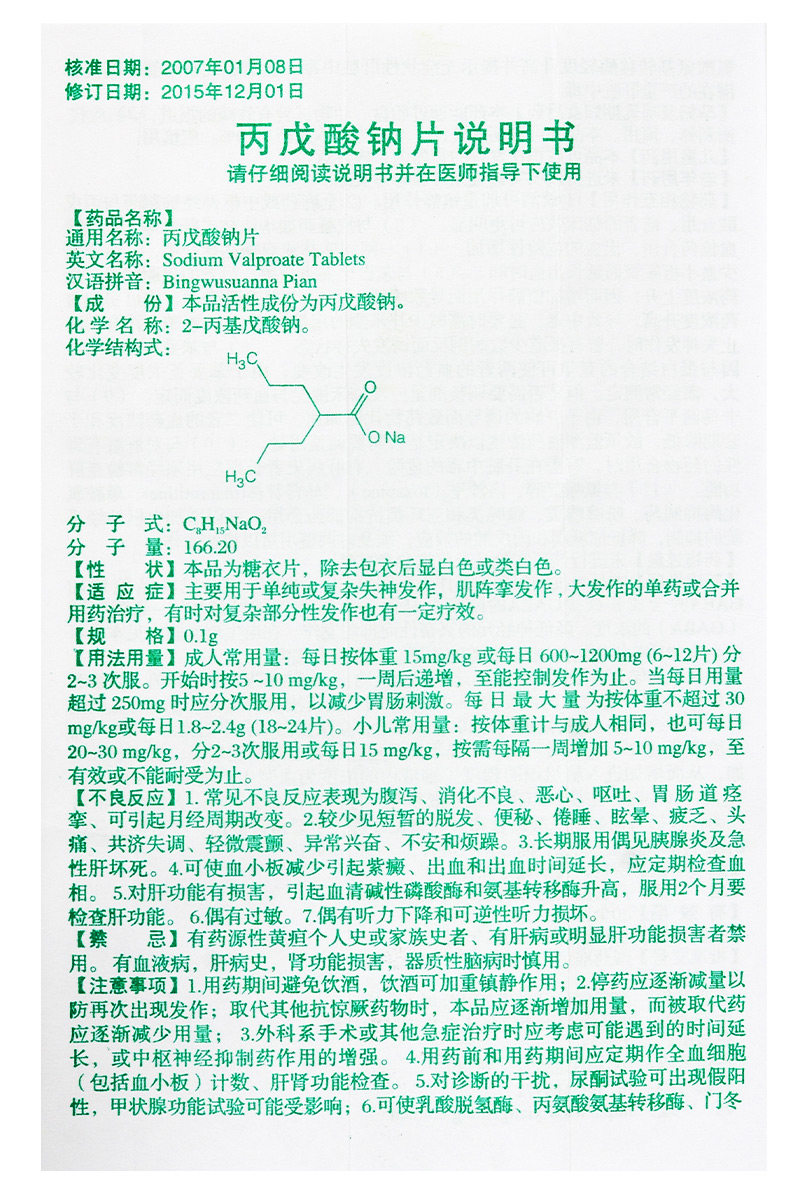 核准日期：2007年01月08日
修订日期：2015年12月01日
丙戊酸钠片说明书
请仔细阅读说明书并在医师指导下使用
【药品名称】
通用名称：丙戊酸钠片
英文名称：Sodium Valproate Tablets
汉语拼音：Bingwusuanna Pian
【成 份】本品活性成份为丙戊酸钠。
化学名称：2-丙基戊酸钠。
化学结构式：
H₃C
O
O Na
H₃C
分 子 式：C₈H₁₅NaO₂
分 子 量：166.20
【性 状】本品为糖衣片，除去包衣后显白色或类白色。
【适 应 症】主要用于单纯或复杂失神发作，肌阵挛发作，大发作的单药或合并
用药治疗，有时对复杂部分性发作也有一定疗效。
【规 格】0.1g
【用法用量】成人常用量：每日按体重 15mg/kg 或每日 600~1200mg (6~12片) 分
2~3 次服。开始时按5 ~10 mg/kg，一周后递增，至能控制发作为止。当每日用量
超过 250mg 时应分次服用，以减少胃肠刺激。每 日 最 大 量 为按体重不超过 30
mg/kg或每日1.8~2.4g (18~24片)。小儿常用量：按体重计与成人相同，也可每日
20~30 mg/kg，分2~3次服用或每日15 mg/kg，按需每隔一周增加 5~10 mg/kg，至
有效或不能耐受为止。
【不良反应】1. 常见不良反应表现为腹泻、消化不良、恶心、呕吐、胃 肠 道 痉
挛、可引起月经周期改变。2.较少见短暂的脱发、便秘、倦睡、眩晕、疲乏、头
痛、共济失调、轻微震颤、异常兴奋、不安和烦躁。3.长期服用偶见胰腺炎及急
性肝坏死。4.可使血小板减少引起紫癜、出血和出血时间延长，应定期检查血
相。 5.对肝功能有损害，引起血清碱性磷酸酶和氨基转移酶升高，服用2个月要
检查肝功能。 6.偶有过敏。7.偶有听力下降和可逆性听力损坏。
【禁 忌】有药源性黄疸个人史或家族史者、有肝病或明显肝功能损害者禁
用。 有血液病，肝病史，肾功能损害，器质性脑病时慎用。
【注意事项】1.用药期间避免饮酒，饮酒可加重镇静作用；2.停药应逐渐减量以
防再次出现发作；取代其他抗惊厥药物时，本品应逐渐增加用量，而被取代药
应逐渐减少用量； 3.外科系手术或其他急症治疗时应考虑可能遇到的时间延
长，或中枢神经抑制药作用的增强。 4.用药前和用药期间应定期作全血细胞
（包括血小板）计数、肝肾功能检查。 5.对诊断的干扰，尿酮试验可出现假阳
性，甲状腺功能试验可能受影响；6.可使乳酸脱氢酶、丙氨酸氨基转移酶、门冬